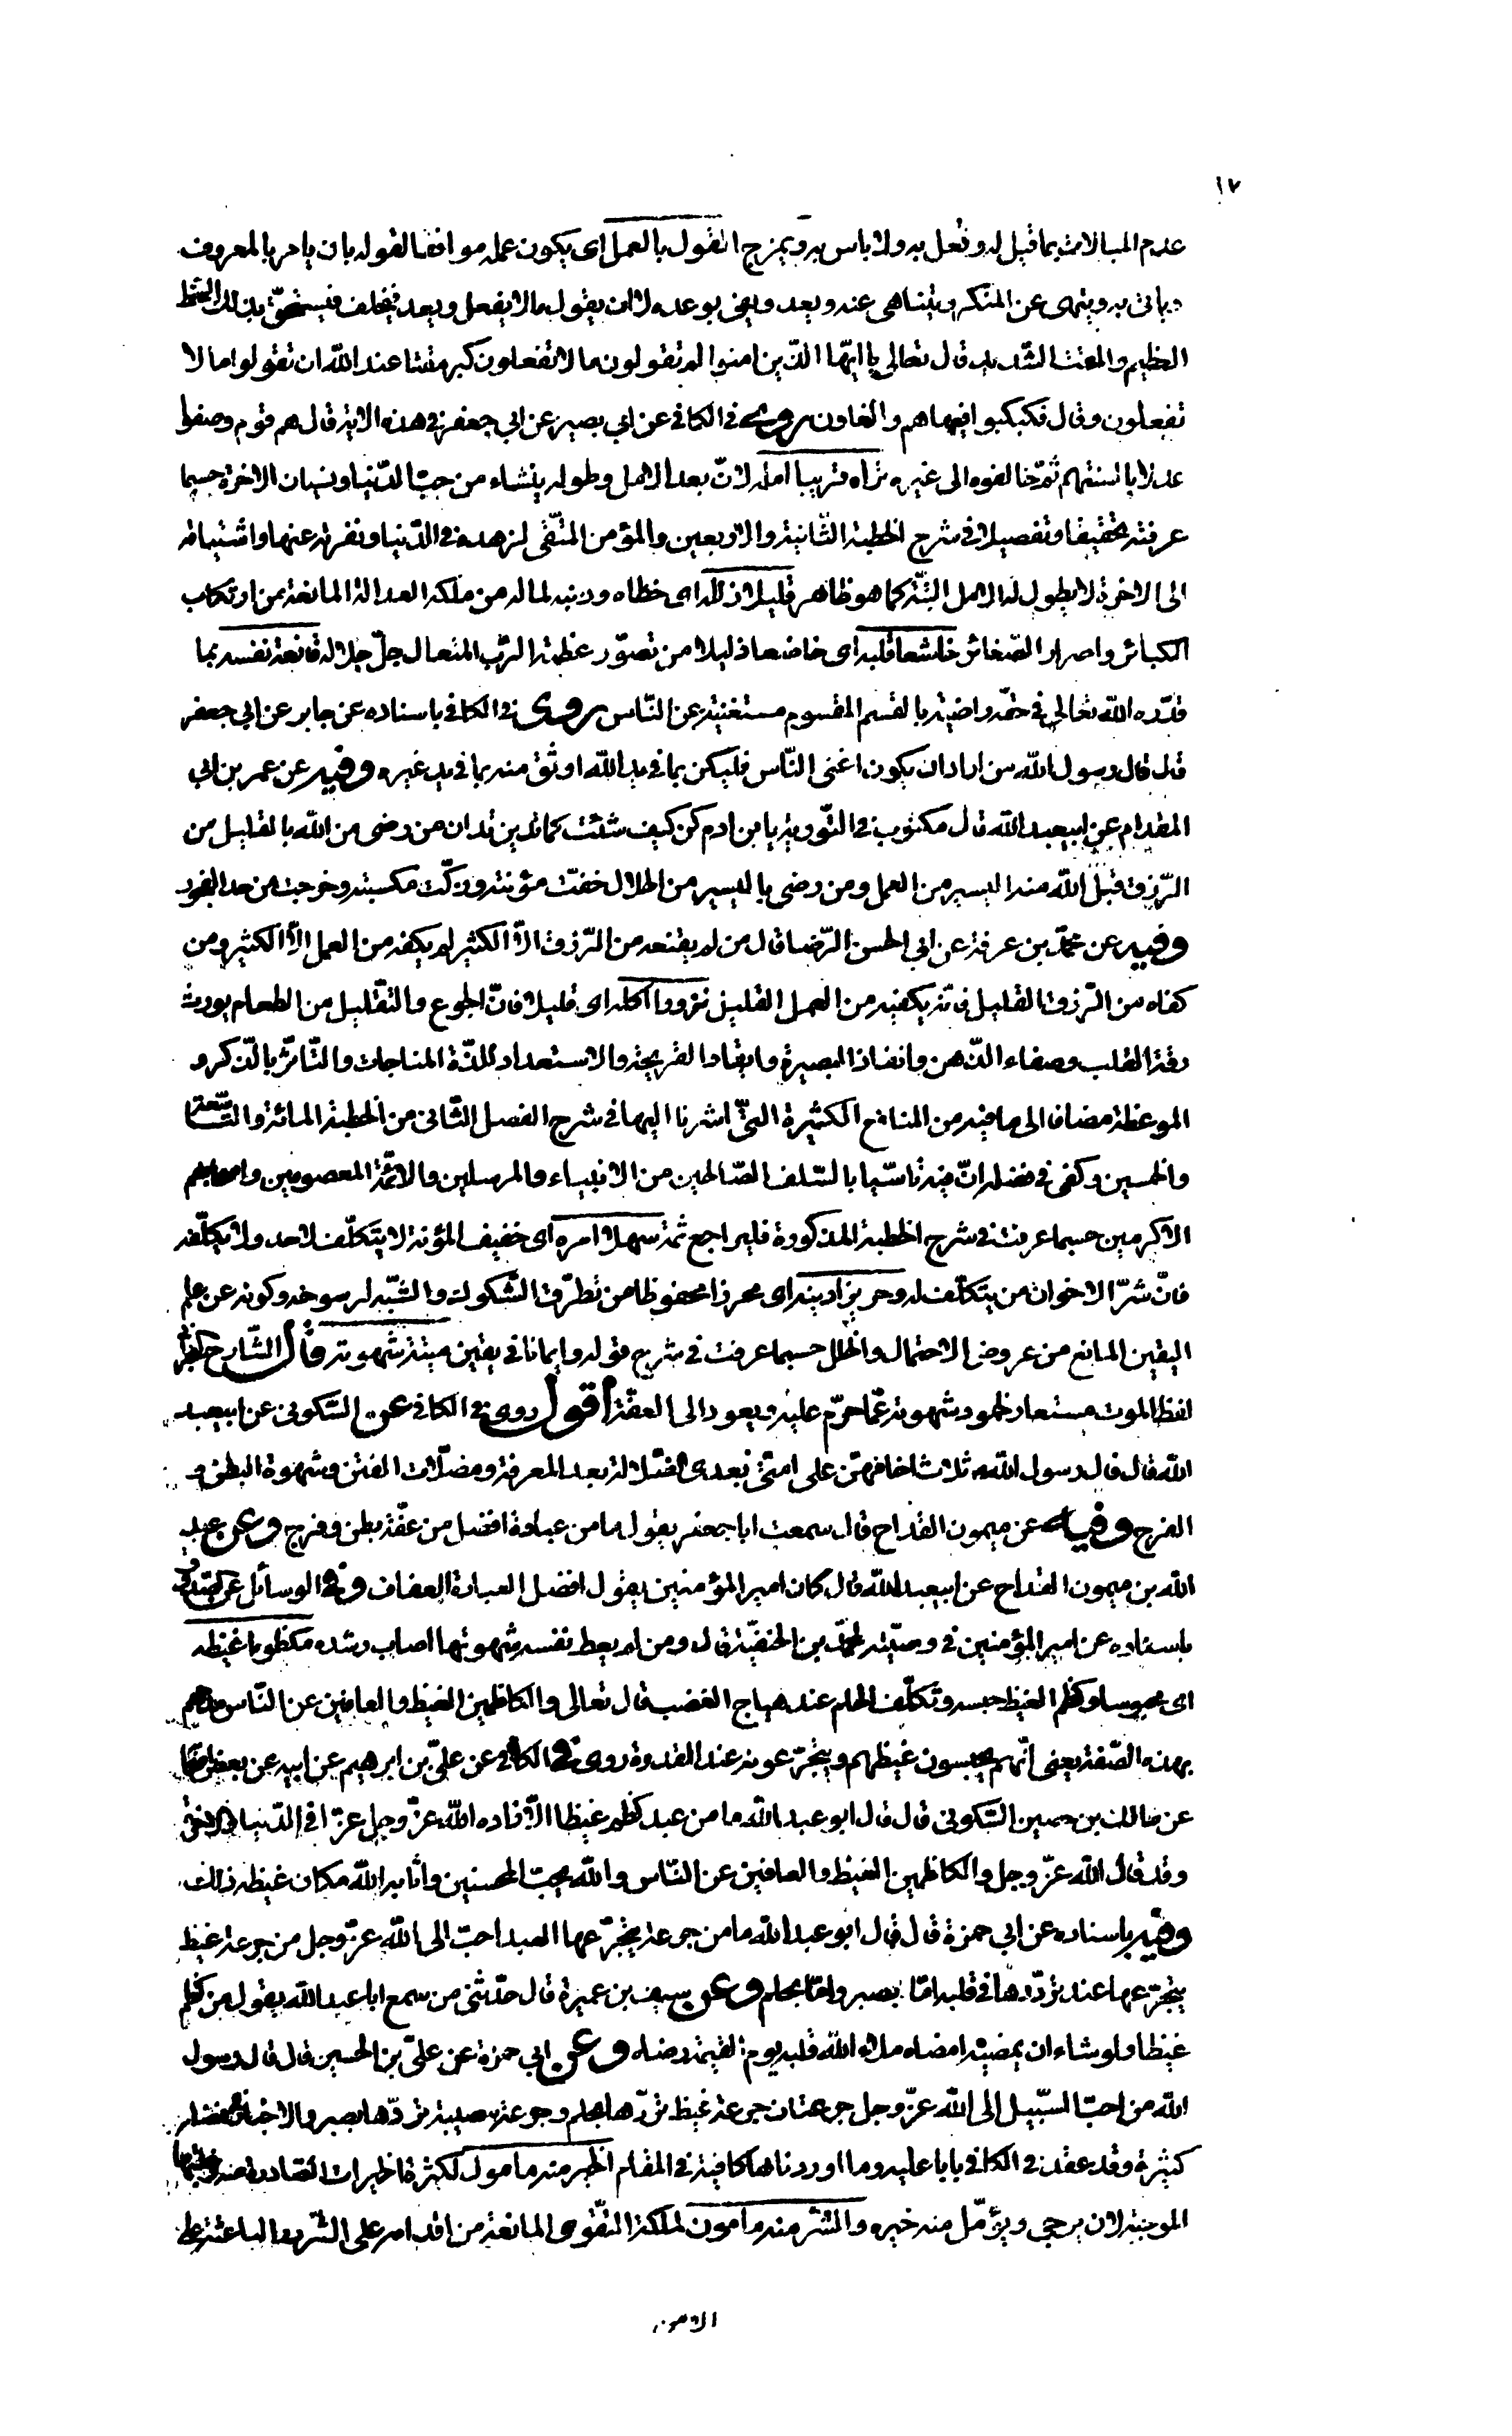 ١٧
عدم المبالات بما قيل له وفعل به ولا باس به ويمزج القول بالعمل اى يكون عمله موافقا لقوله بان يامر بالمعروف
وياتى به وينهى عن المنكر ويتناهى عنه ويعد ويفى بوعده لا ان يقول ما لا يفعل ويعد فيخلف فيستحقّ بذلك السّخط
العظيم والمقت الشّديد قال تعالى يا ايّها الّذين امنوا لم تقولون ما لا تفعلون كبر مقتا عند الله ان تقولوا ما لا
تفعلون وقال فكبكبوا فيها هم والغاون روى فى الكافى عن ابي بصير عن ابي جعفر فى هذه الاية قال هم قوم وصفوا
عدلا بالسنتهم ثمّ خالفوه الى غيره تراه قريبا امله لانّ بعد الامل وطوله ينشاء من حبّ الدّنيا ونسيان الاخرة حسبما
عرفته تحقيقا وتفصيلا فى شرح الخطبة الثّانية والاربعين والمؤمن المتّقى لزهده فى الدّنيا ونفرته عنها واشتياقه
الى الاخرة لا يطول له الامل البتّة كما هو ظاهر قليلا زلله اى خطاه وذنبه لما له من ملكة العدالة المانعة من ارتكاب
الكبائر واصرار الصّغائر خاشعا قلبه اى خاضعا ذليلا من تصوّر عظمة الرّب المتعال جلّ جلاله قانعة نفسه بما
قدّره الله تعالى فى حقّه راضية بالقسم المقسوم مستغنية عن النّاس روى فى الكافى باسناده عن جابر عن ابى جعفر
قال قال رسول الله من اراد ان يكون اغنى النّاس فليكن بما فى يد الله اوثق منه بما فى يد غيره وفيه عن عمر بن ابى
المقدام عن ابيعبد الله قال مكتوب فى التّورية يا بن ادم كن كيف شئت كما تدين تدان من رضى من الله بالقليل من
الرّزق قبل الله منه اليسير من العمل ومن رضى باليسير من الحلال خفّت مؤنته وزكّت مكسبته وخرجت من حد الفجور
وفيه عن محمّد بن عرفة عن ابى الحسن الرّضا قال من لم يقنعه من الرّزق الّا الكثير لم يكفه من العمل الّا الكثير ومن
كفاه من الرّزق القليل فانّه يكفيه من العمل القليل نزورا اكله اى قليلا فانّ الجوع والتّقليل من الطعام يورث
رقة القلب وصفاء الذّهن وانفاذ البصيرة وايقاد القريحة والاستعداد للذّة المناجات والتّاثّر بالذّكر و
الموعظة مضافا الى ما فيه من المنافع الكثيرة الّتى اشرنا اليها فى شرح الفصل الثّانى من الخطبة المائة والتّاسعة
والخمسين وكفى فى فضله انّ فيه تاسّيا بالسّلف الصّالحين من الانبياء والمرسلين والائمّة المعصومين
الاكرمين حسبما عرفت فى شرح الخطبة المذكورة فليراجع ثمّة سهلا امره اى خفيف المؤنة لا يتكلّف لاحد ولا يكلّفه
فانّ شرّ الاخوان من يتكلّف له وحريزا دينه اى محرزا محفوظا من تطرّق الشّكوك والشّبه لرسوخه وكونه عن علم
اليقين المانع من عروض الاحتمال والخلل حسبما عرفت فى شرح قوله وايمانا فى يقين ميتة شهوته قال الشّارح
لفظ الموت مستعار لخمود شهوته عمّا حرّم عليه ويعود الى العفّة اقول روى فى الكافى عن السّكونى عن ابيعبد
الله قال قال رسول الله ثلاث اخافهنّ على امّتى بعدى الضّلالة بعد المعرفة ومضلّات الفتن وشهوة البطن و
الفرج وفيه عن ميمون القداح قال سمعت ابا جعفر يقول ما من عبادة افضل من عفّة بطن وفرج وعن عبد
الله بن ميمون القداح عن ابيعبد الله قال كان امير المؤمنين يقول افضل العبادة العفاف وفى الوسائل عن الصّدوق
باسناده عن امير المؤمنين فى وصيّته لمحمّد بن الحنفيّة قال ومن لم يعط نفسه شهوتها اصاب رشده مكظوما غيظه
اى محبوسا وكظم الغيظ حبسه وتكلّف الحلم عند هياج الغضب قال تعالى والكاظمين الغيظ والعافين عن النّاس
بهذه الصّفة يعنى انّهم يحبسون غيظهم ويتجرّعونه عند القدرة روى فى الكافى عن علىّ بن ابرهيم عن ابيه عن بعض اصحابه
عن مالك بن حصين السّكونى قال قال ابو عبد الله ما من عبد كظم غيظا الّا زاده الله عزّ وجل عزّا فى الدّنيا والاخرة
وقد قال الله عزّ وجل والكاظمين الغيظ والعافين عن النّاس والله يحبّ المحسنين واثابه الله مكان غيظه ذلك
وفيه باسناده عن ابى حمزة قال قال ابو عبد الله ما من جرعة يتجرّعها العبد احبّ الى الله عزّ وجل من جرعة غيظ
يتجرّعها عند تردّدها فى قلبه امّا بصبر وامّا بحلم وعن سيف بن عميرة قال حدّثنى من سمع ابا عبد الله يقول من كظم
غيظا ولو شاء ان يمضيه امضاه ملاء الله قلبه يوم القيمة رضاه وعن ابى حمزة عن علىّ بن الحسين قال قال رسول
الله من احبّ السّبيل الى الله عزّ وجل جرعتان جرعة غيظ تردّها بحلم وجرعة مصيبة تردّها بصبر والاخبار فى فضله
كثيرة وقد عقد فى الكافى بابا عليه وما اوردناها كافية فى المقام الخير منه مامول لكثرة الخيرات الصّادرة منه
الموجبة لان يرجى ويؤمّل منه خيره والشر منه مامون لملكة التقوى المانعة من اقدامه على الشّر والباعثة على
الامن